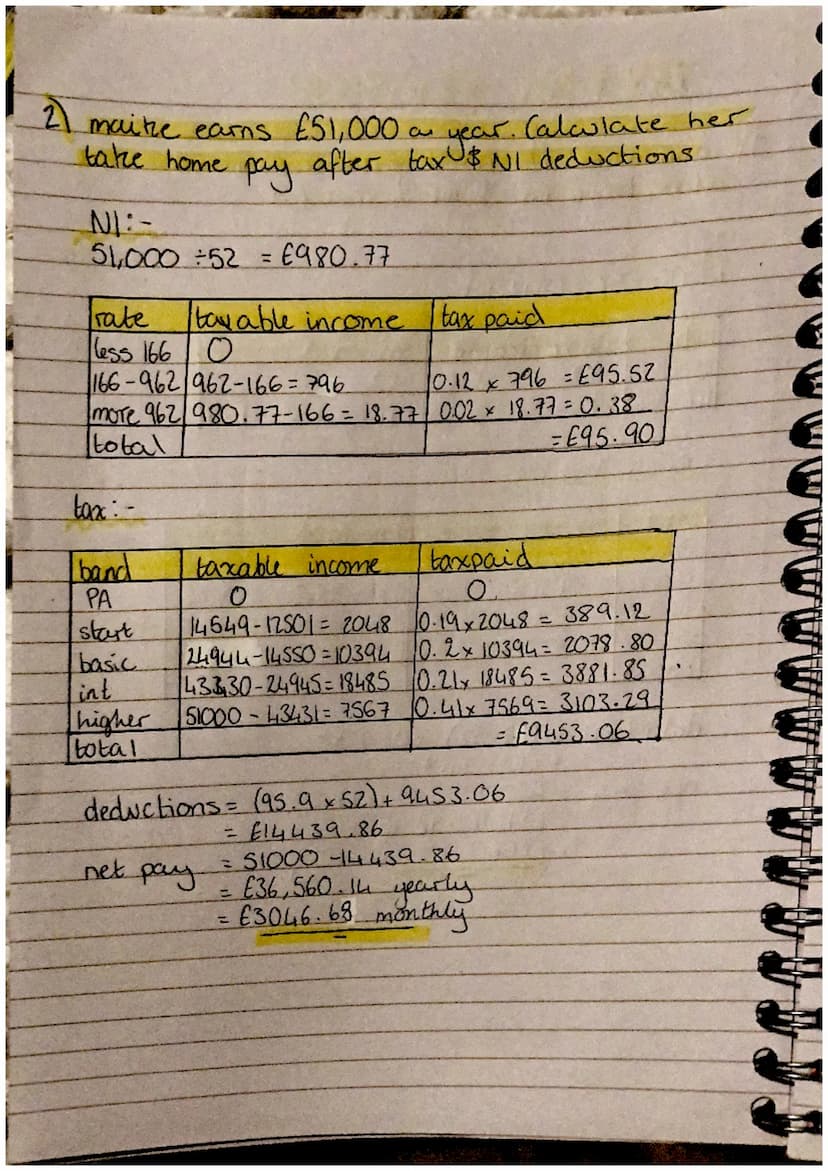 2) maire earns £51,000 a year. Calculate her
take home pay after tax $ NI deductions
NI:-
51,000 ÷52 = £980.77
rate taxable income tax paid
less 166 0
166-962 962-166= 796 0.12 x 796 = £95.52
more 962 980.77-166= 18.77 0.02 x 18.77= 0.38
total =£95.90
tax:-
band taxable income taxpaid
PA 0 0
start 14549-12501= 2048 0.19x2048 = 389.12
basic 24944-14550=10394 0.2x 10394= 2078.80
int 43430-24945=18485 0.21x 18485= 3881.85
higher 51000 - 43431= 7567 0.41x 7569= 3103.29
total = £9453.06
deductions= (95.9 x52)+ 9453.06
= £14439.86
net pay = 51000 -14439.86
= £36,560.14 yearly
= £3046.68 monthly